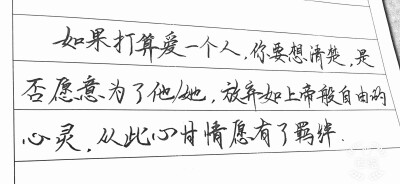 如果打算爱一个人,你要想清楚,是
否愿意为了他/她,放弃如上帝般自由的
心灵,从此心甘情愿有了羁绊.